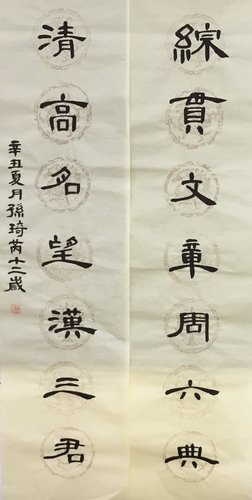 綜貫文章周六典
清高名望漢三君
辛丑夏月孫琦芮十二歲